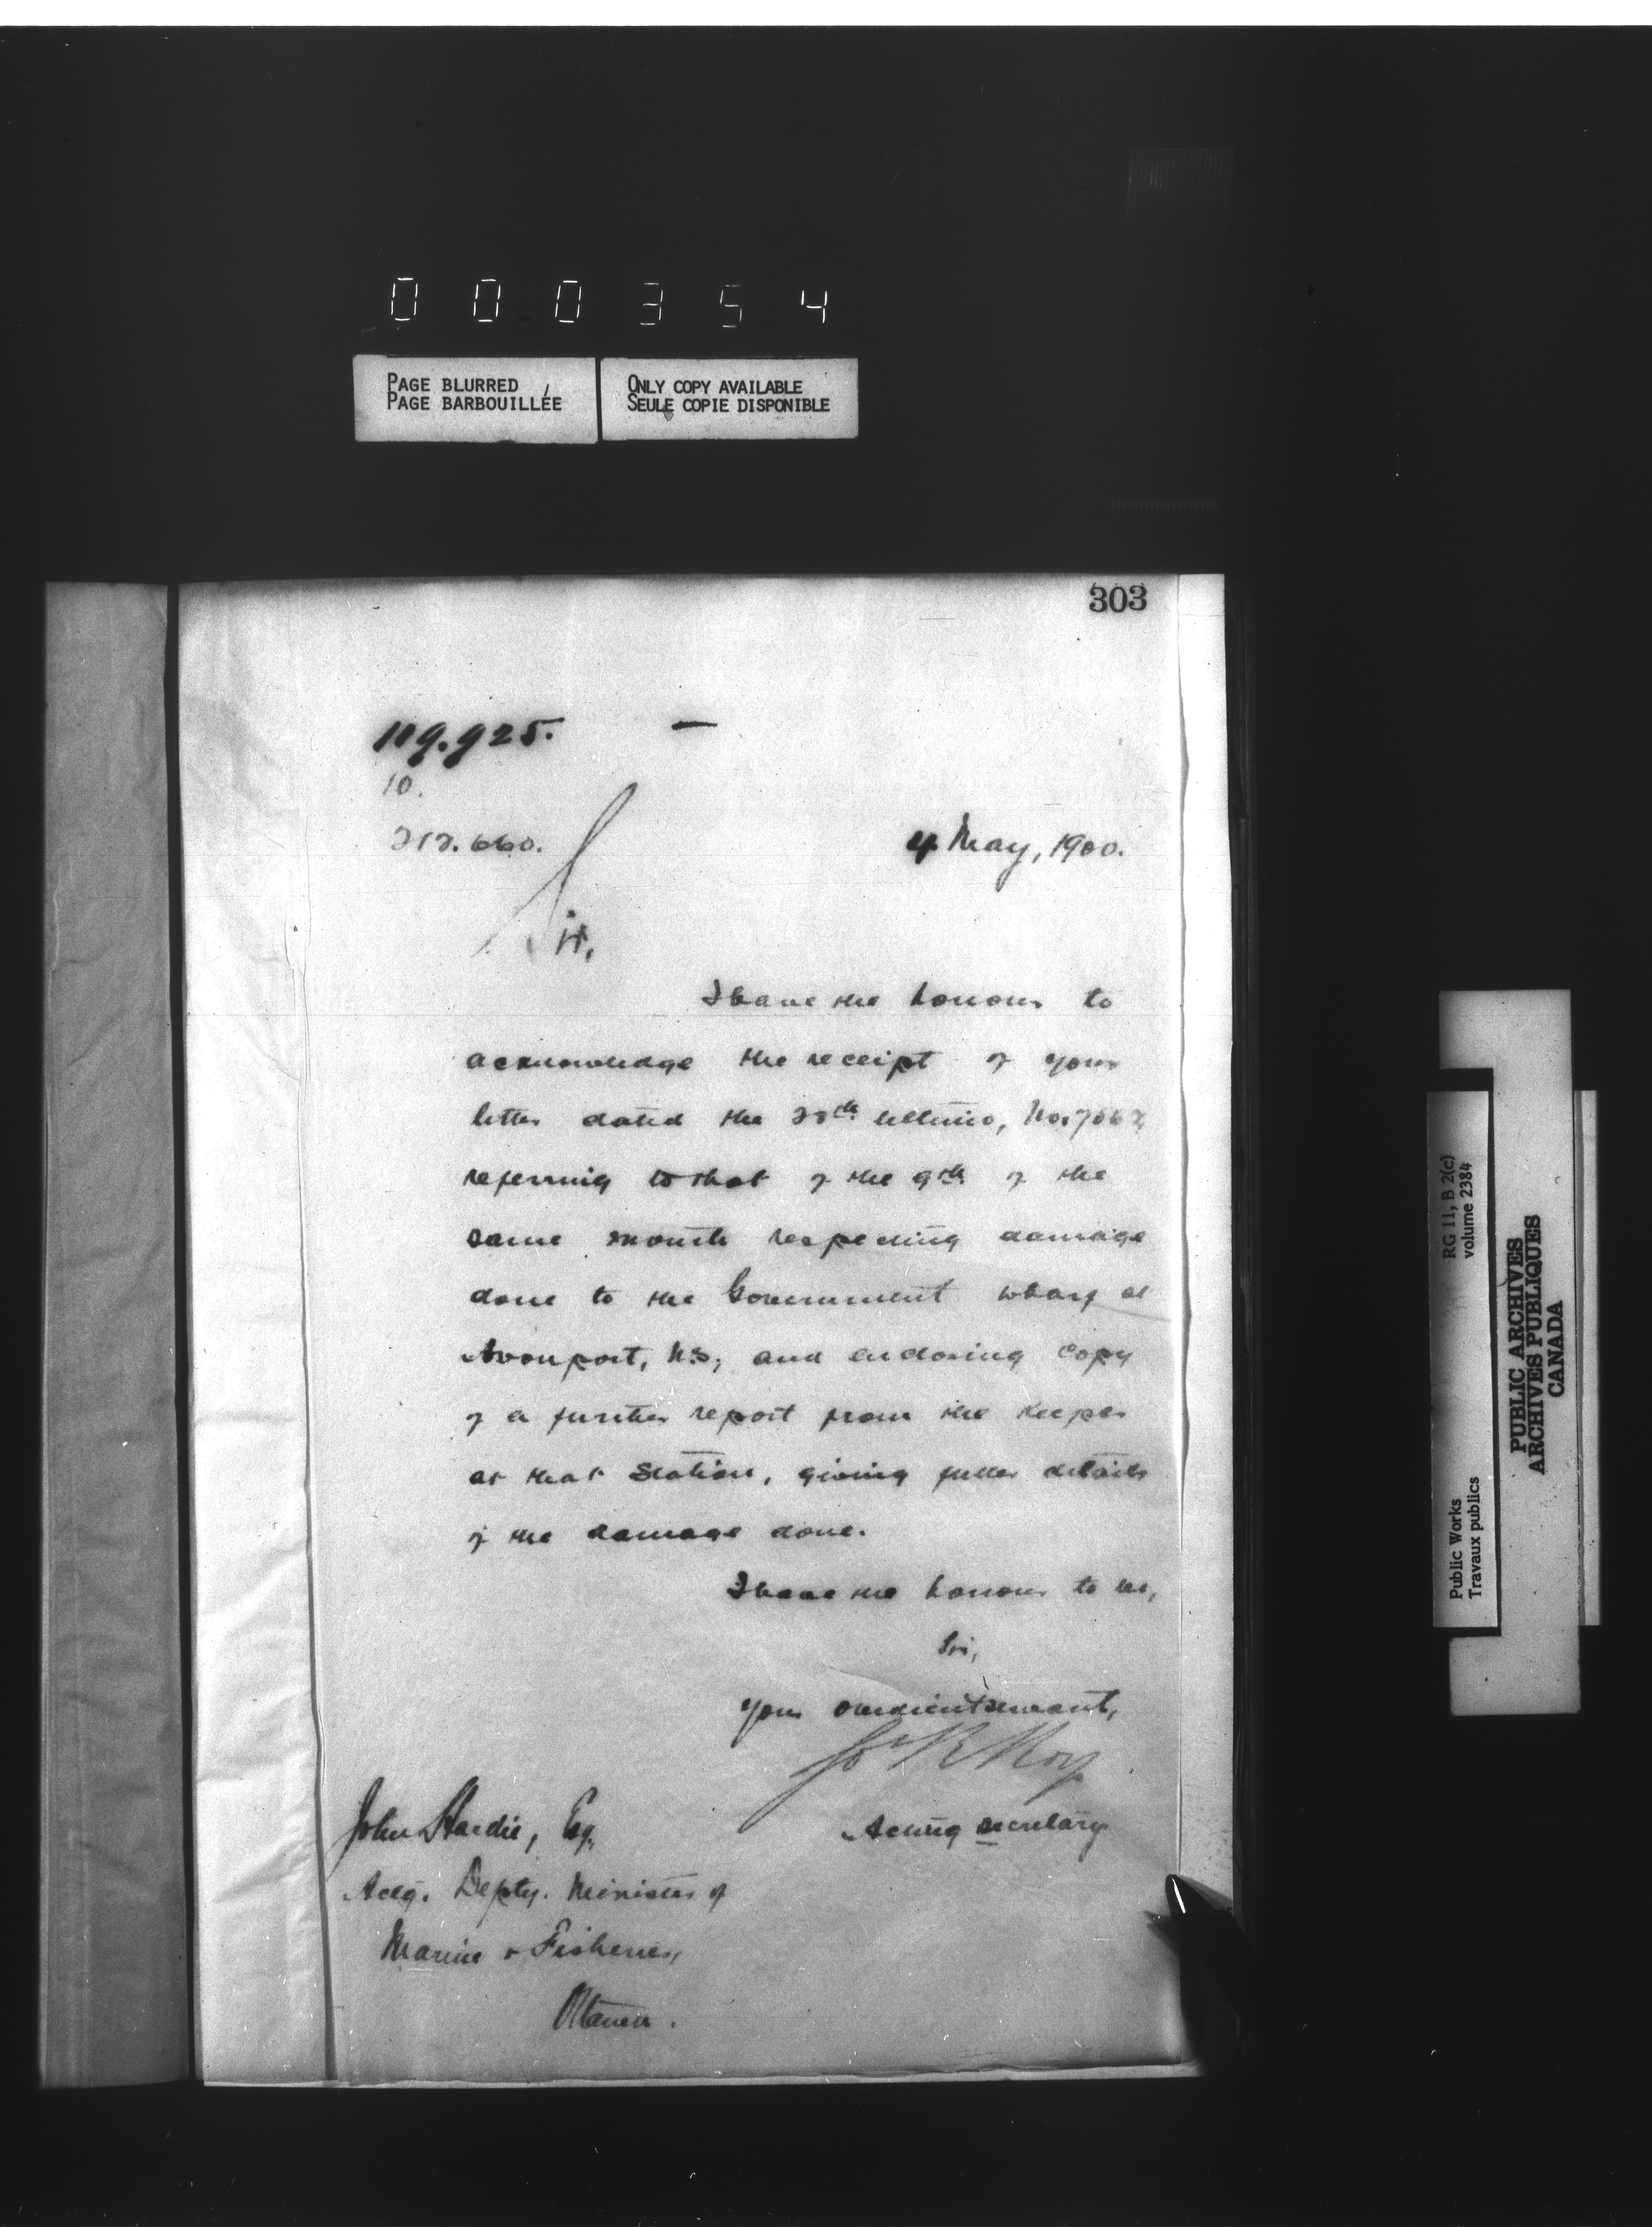 000354
PAGE BLURRED
PAGE BARBOUILLÉE
ONLY COPY AVAILABLE
SEULE COPIE DISPONIBLE
303
119.925.
10.
212.660.
4 May, 1900.
Sir,
I have the honour to
acknowledge the receipt of your
letter dated the 28th ultimo,
referring to that of the 9th of the
same month respecting damage
done to the Government wharf at
Avonport, N.S, and enclosing copy
of a further report from the Keeper
at that Station, giving fuller details
of the damage done.
I have the honour to be,
Sir,
your obedient servant,
Jos R Roy
Acting secretary
John Hardie, Esq.
Actg. Depty. Minister of
Marine & Fisheries,
Ottawa.
RG 11, B 2(c)
volume 2384
Public Works
Travaux publics
PUBLIC ARCHIVES
ARCHIVES PUBLIQUES
CANADA